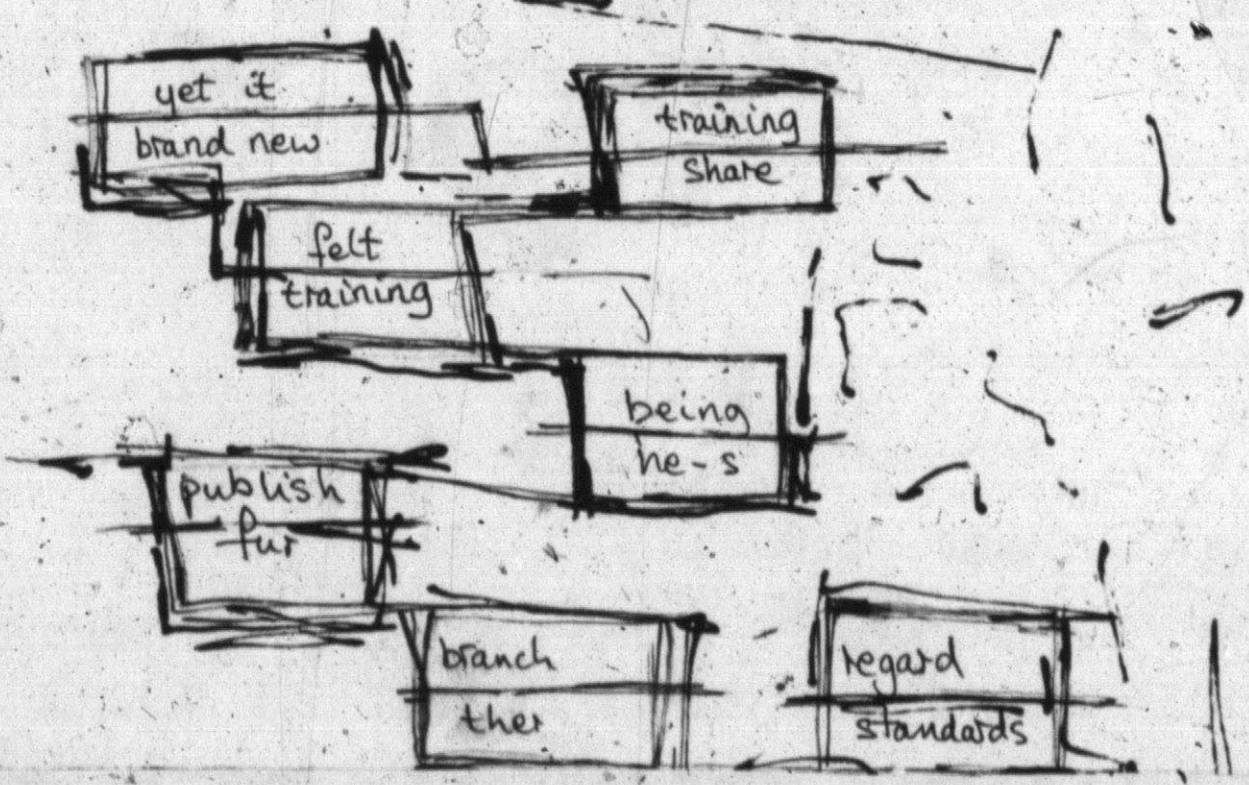 yet it
brand new
training
share
felt
training
being
he-s
publish
fur
branch
ther
regard
standards